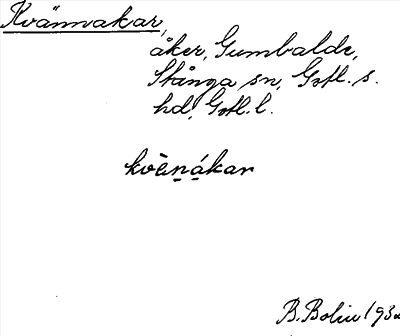 Kvännakar,
åker, Gumbalde,
Stånga sn, Gotl. s.
hd, Gotl. l.
kvènákar
B. Bolin 1932